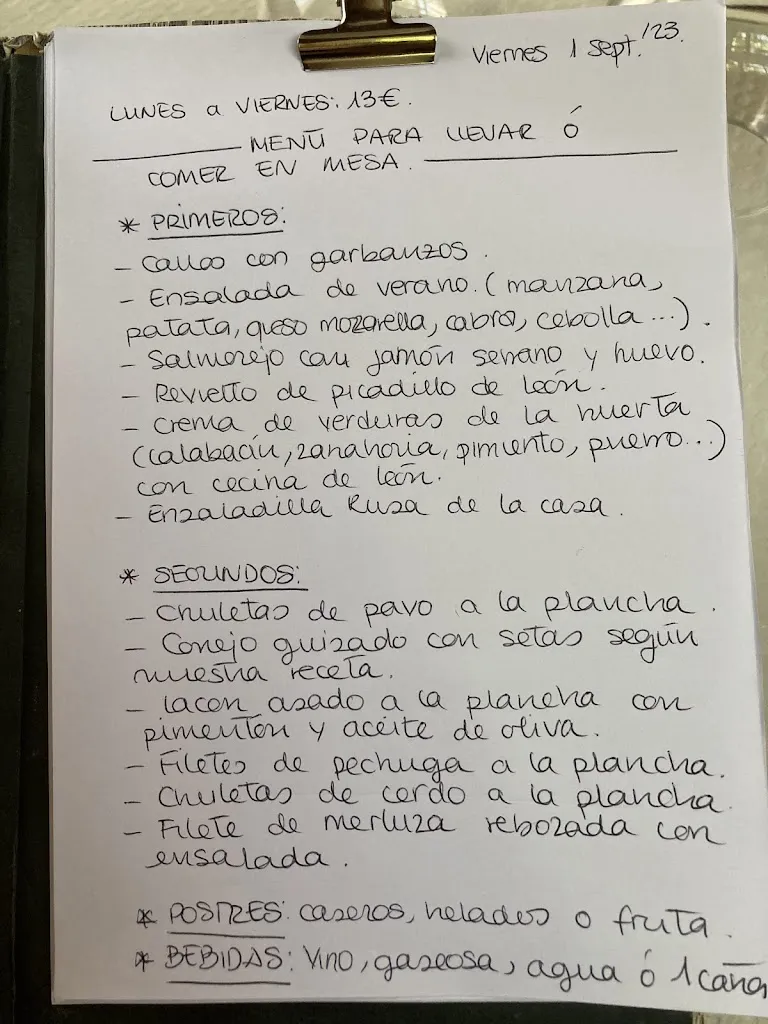 Viernes 1 sept.'23.
LUNES a VIERNES: 13€.
MENÚ PARA LLEVAR Ó
COMER EN MESA.
* PRIMEROS:
- Callos con garbanzos.
- Ensalada de verano. (manzana,
patata, queso mozarella, cabra, cebolla...).
- Salmorejo con jamón serrano y huevo.
- Revuelto de picadillo de león.
- Crema de verduras de la huerta
(calabacín, zanahoria, pimiento, puerro...)
con cecina de león.
- Ensaladilla Rusa de la casa.
* SEGUNDOS:
- Chuletas de pavo a la plancha.
- Conejo guisado con setas según
nuestra receta.
- lacon asado a la plancha con
pimentón y aceite de oliva.
- Filetes de pechuga a la plancha.
- Chuletas de cerdo a la plancha.
- Filete de merluza rebozada con
ensalada.
* POSTRES: caseros, helados o fruta.
* BEBIDAS: Vino, gaseosa, agua ó 1 caña